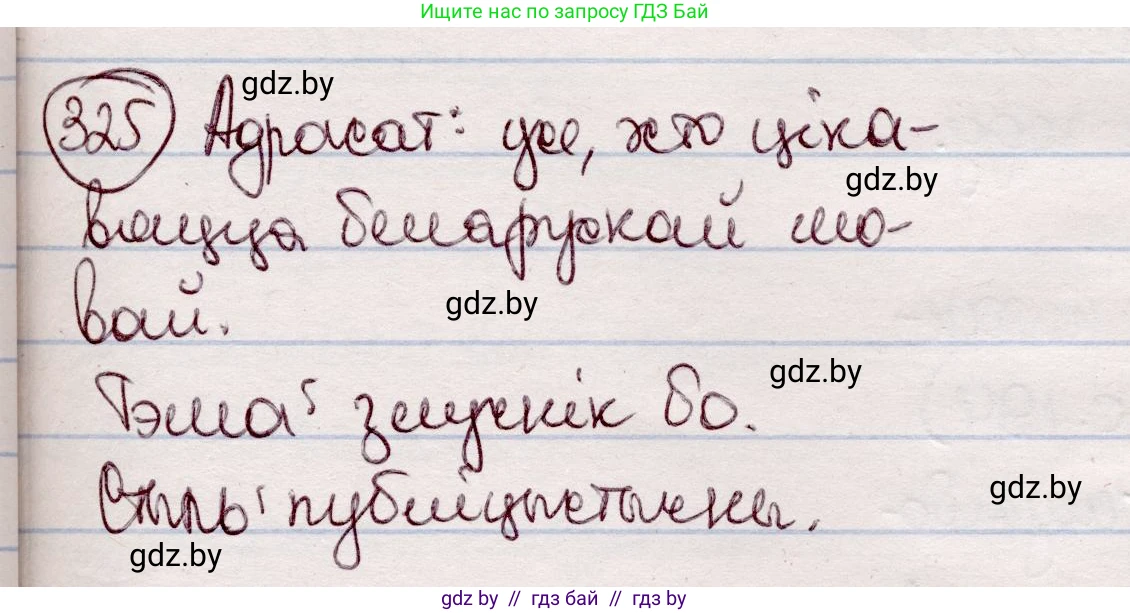 Ищите нас по запросу ГДЗ Бай
gdz.by
325 Адрасат: усе, хто ціка-
gdz.by
вацца беларускай мо-
вай.
gdz.by
gdz.by
Тэма: злучнік бо.
Стыль: публіцыстычны.
gdz.by
gdz.by
gdz.by // гдз бай // гдз by